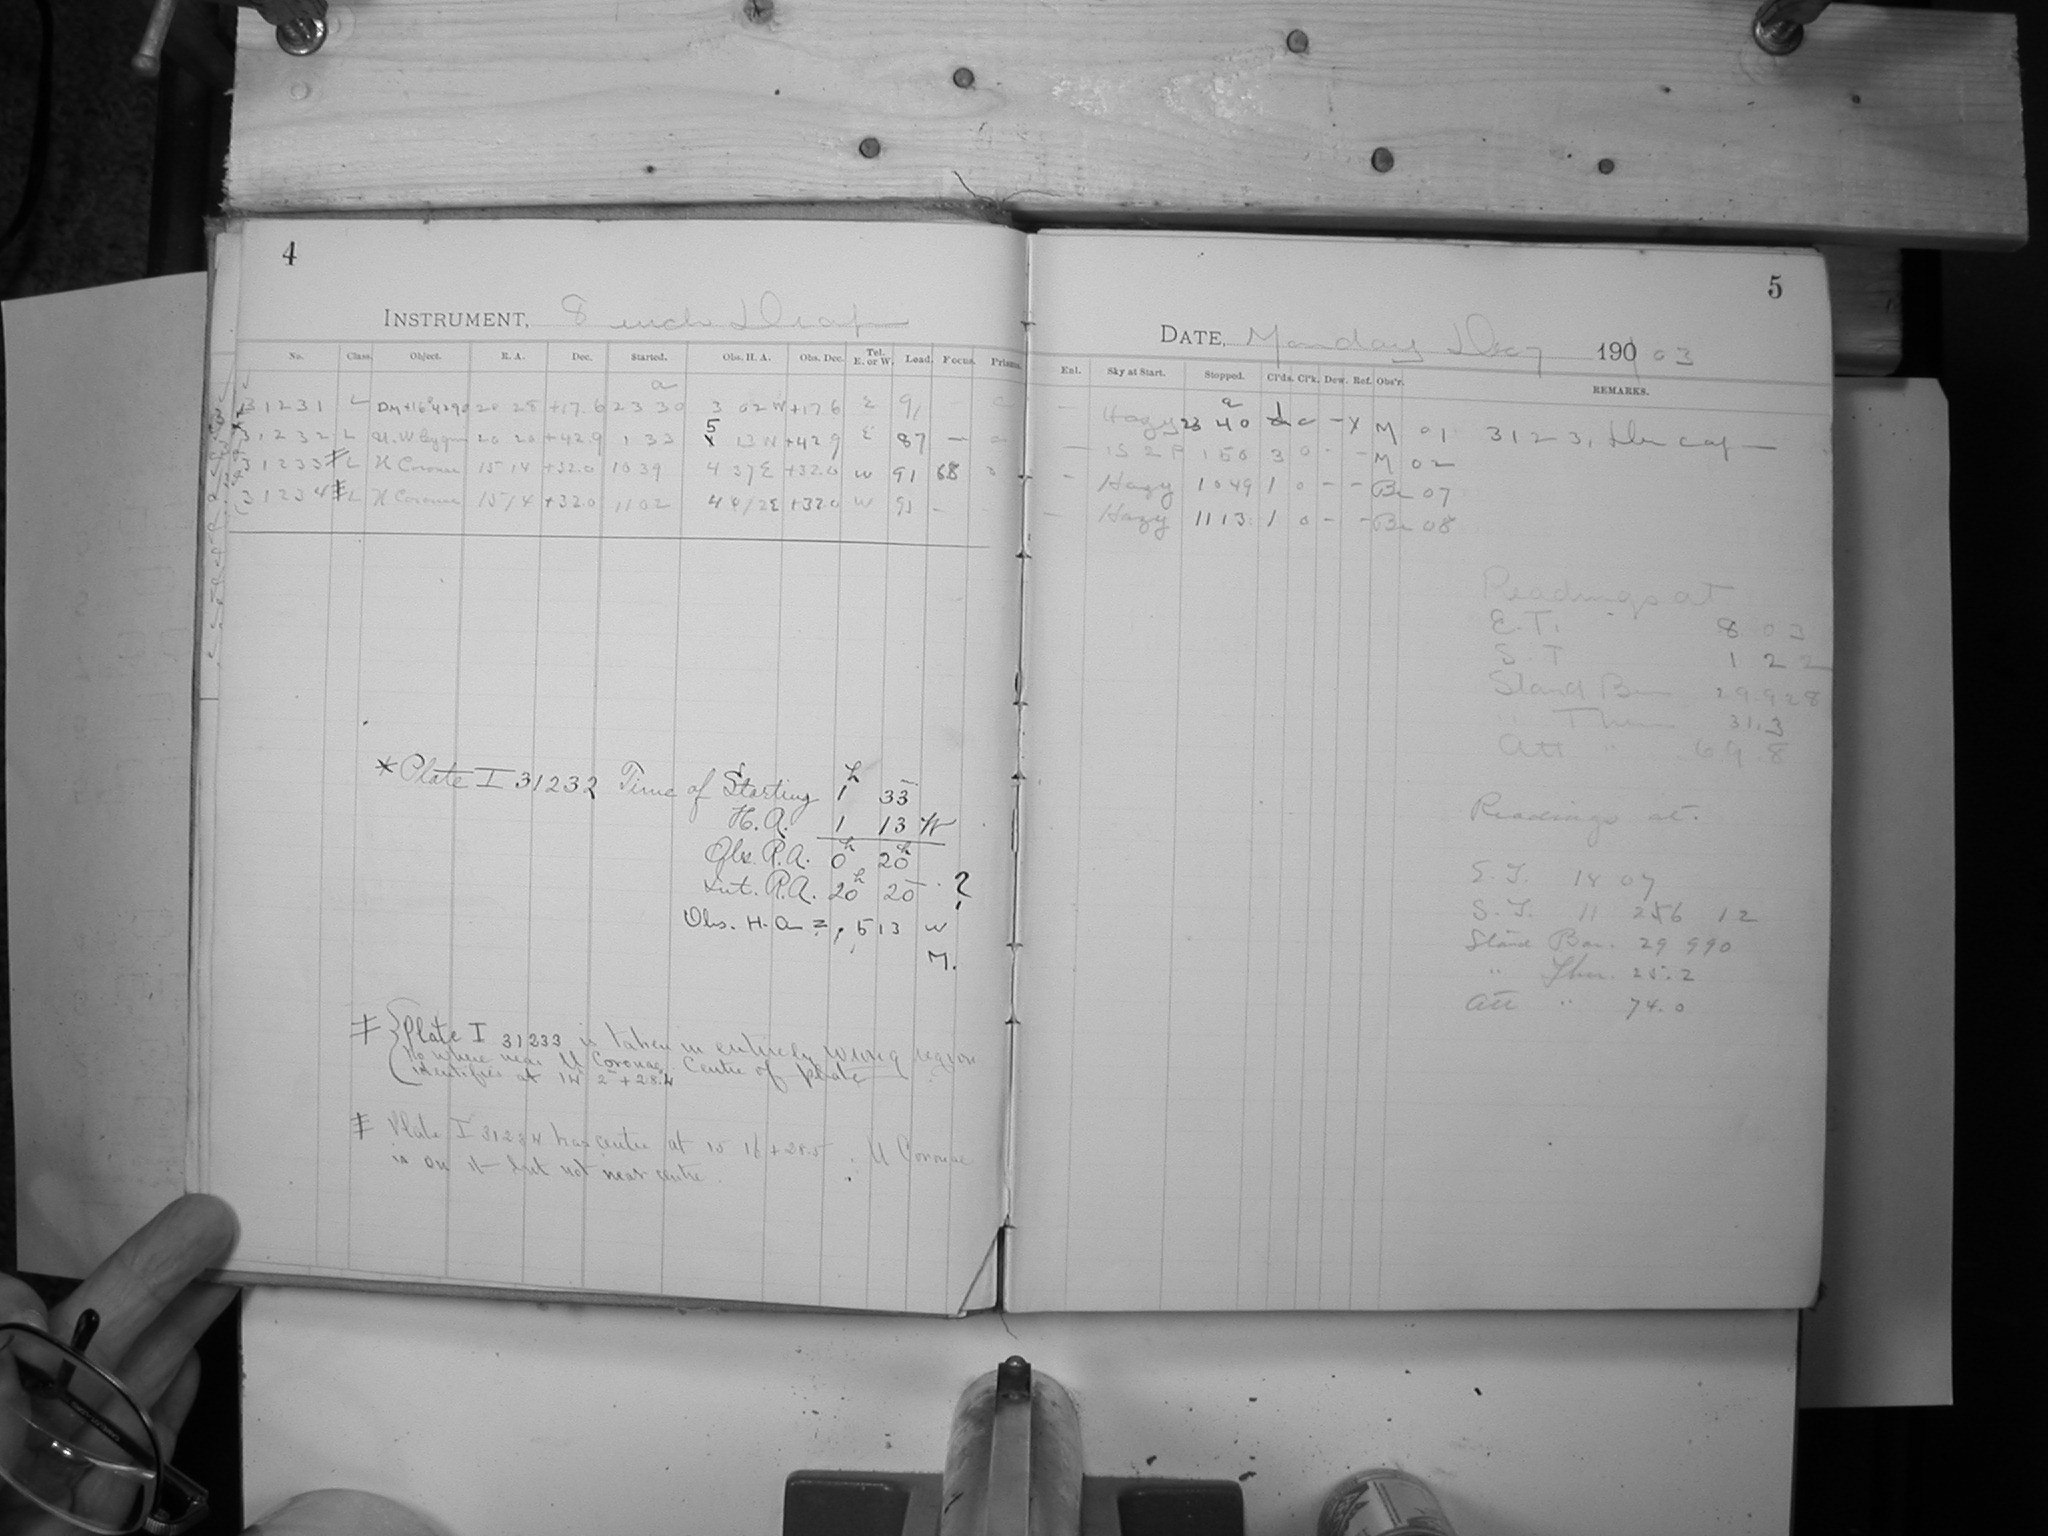 4
INSTRUMENT, 8 inch Draper
No. Class. Object. R. A. Dec. Started. Obs. H. A. Obs. Dec. Tel. E. or W. Load. Focus. Prisms.
31231 L DM+16°4290 20 28 +17.6 23 30 3 02 W +17 6 E 91 -
31232 L U.W. Cygni 20 20 +42.9 1 33 5 13 W +42 9 E 87 -
31233 L U Coronae 15 14 +32.0 10 39 4 37 E +32.0 W 91 68
31234 L U Coronae 15 14 +32.0 11 02 4 12 E +32.0 W 91 -
* Plate I 31232 Time of Starting 1h 33
H.A. 1 13 W
Obs. R.A. 0h 20
Int. R.A. 20h 20 . ?
Obs. H. A = 5 13 W
M.
Plate I 31233 is taken in entirely wrong region
No where near U Coronae. Centre of plate
identifies at 14 2 +28.4
Plate I 31234 has centre at 15 16 +28.5 U Coronae
is on it but not near centre.
5
DATE, Monday Dec 7 1903
Enl. Sky at Start. Stopped. Cl'ds. Cl'k. Dew. Ref. Obs'r. REMARKS.
- Hazy 23 40 1 0 - M 01 31231, Dew cap -
- 1 S 2 P 1 50 3 0 - - M 02
- Hazy 10 49 1 0 - - Br 07
- Hazy 11 13 1 0 - - Br 08
Readings at
E.T. 8 03
S.T 1 22
Stand Bar 29.928
" Ther 31.3
Att " 69.8
Readings at.
E.T. 18 07
S.T. 11 12
Stand Bar. 29 990
" Ther. 25.2
Att " 74.0